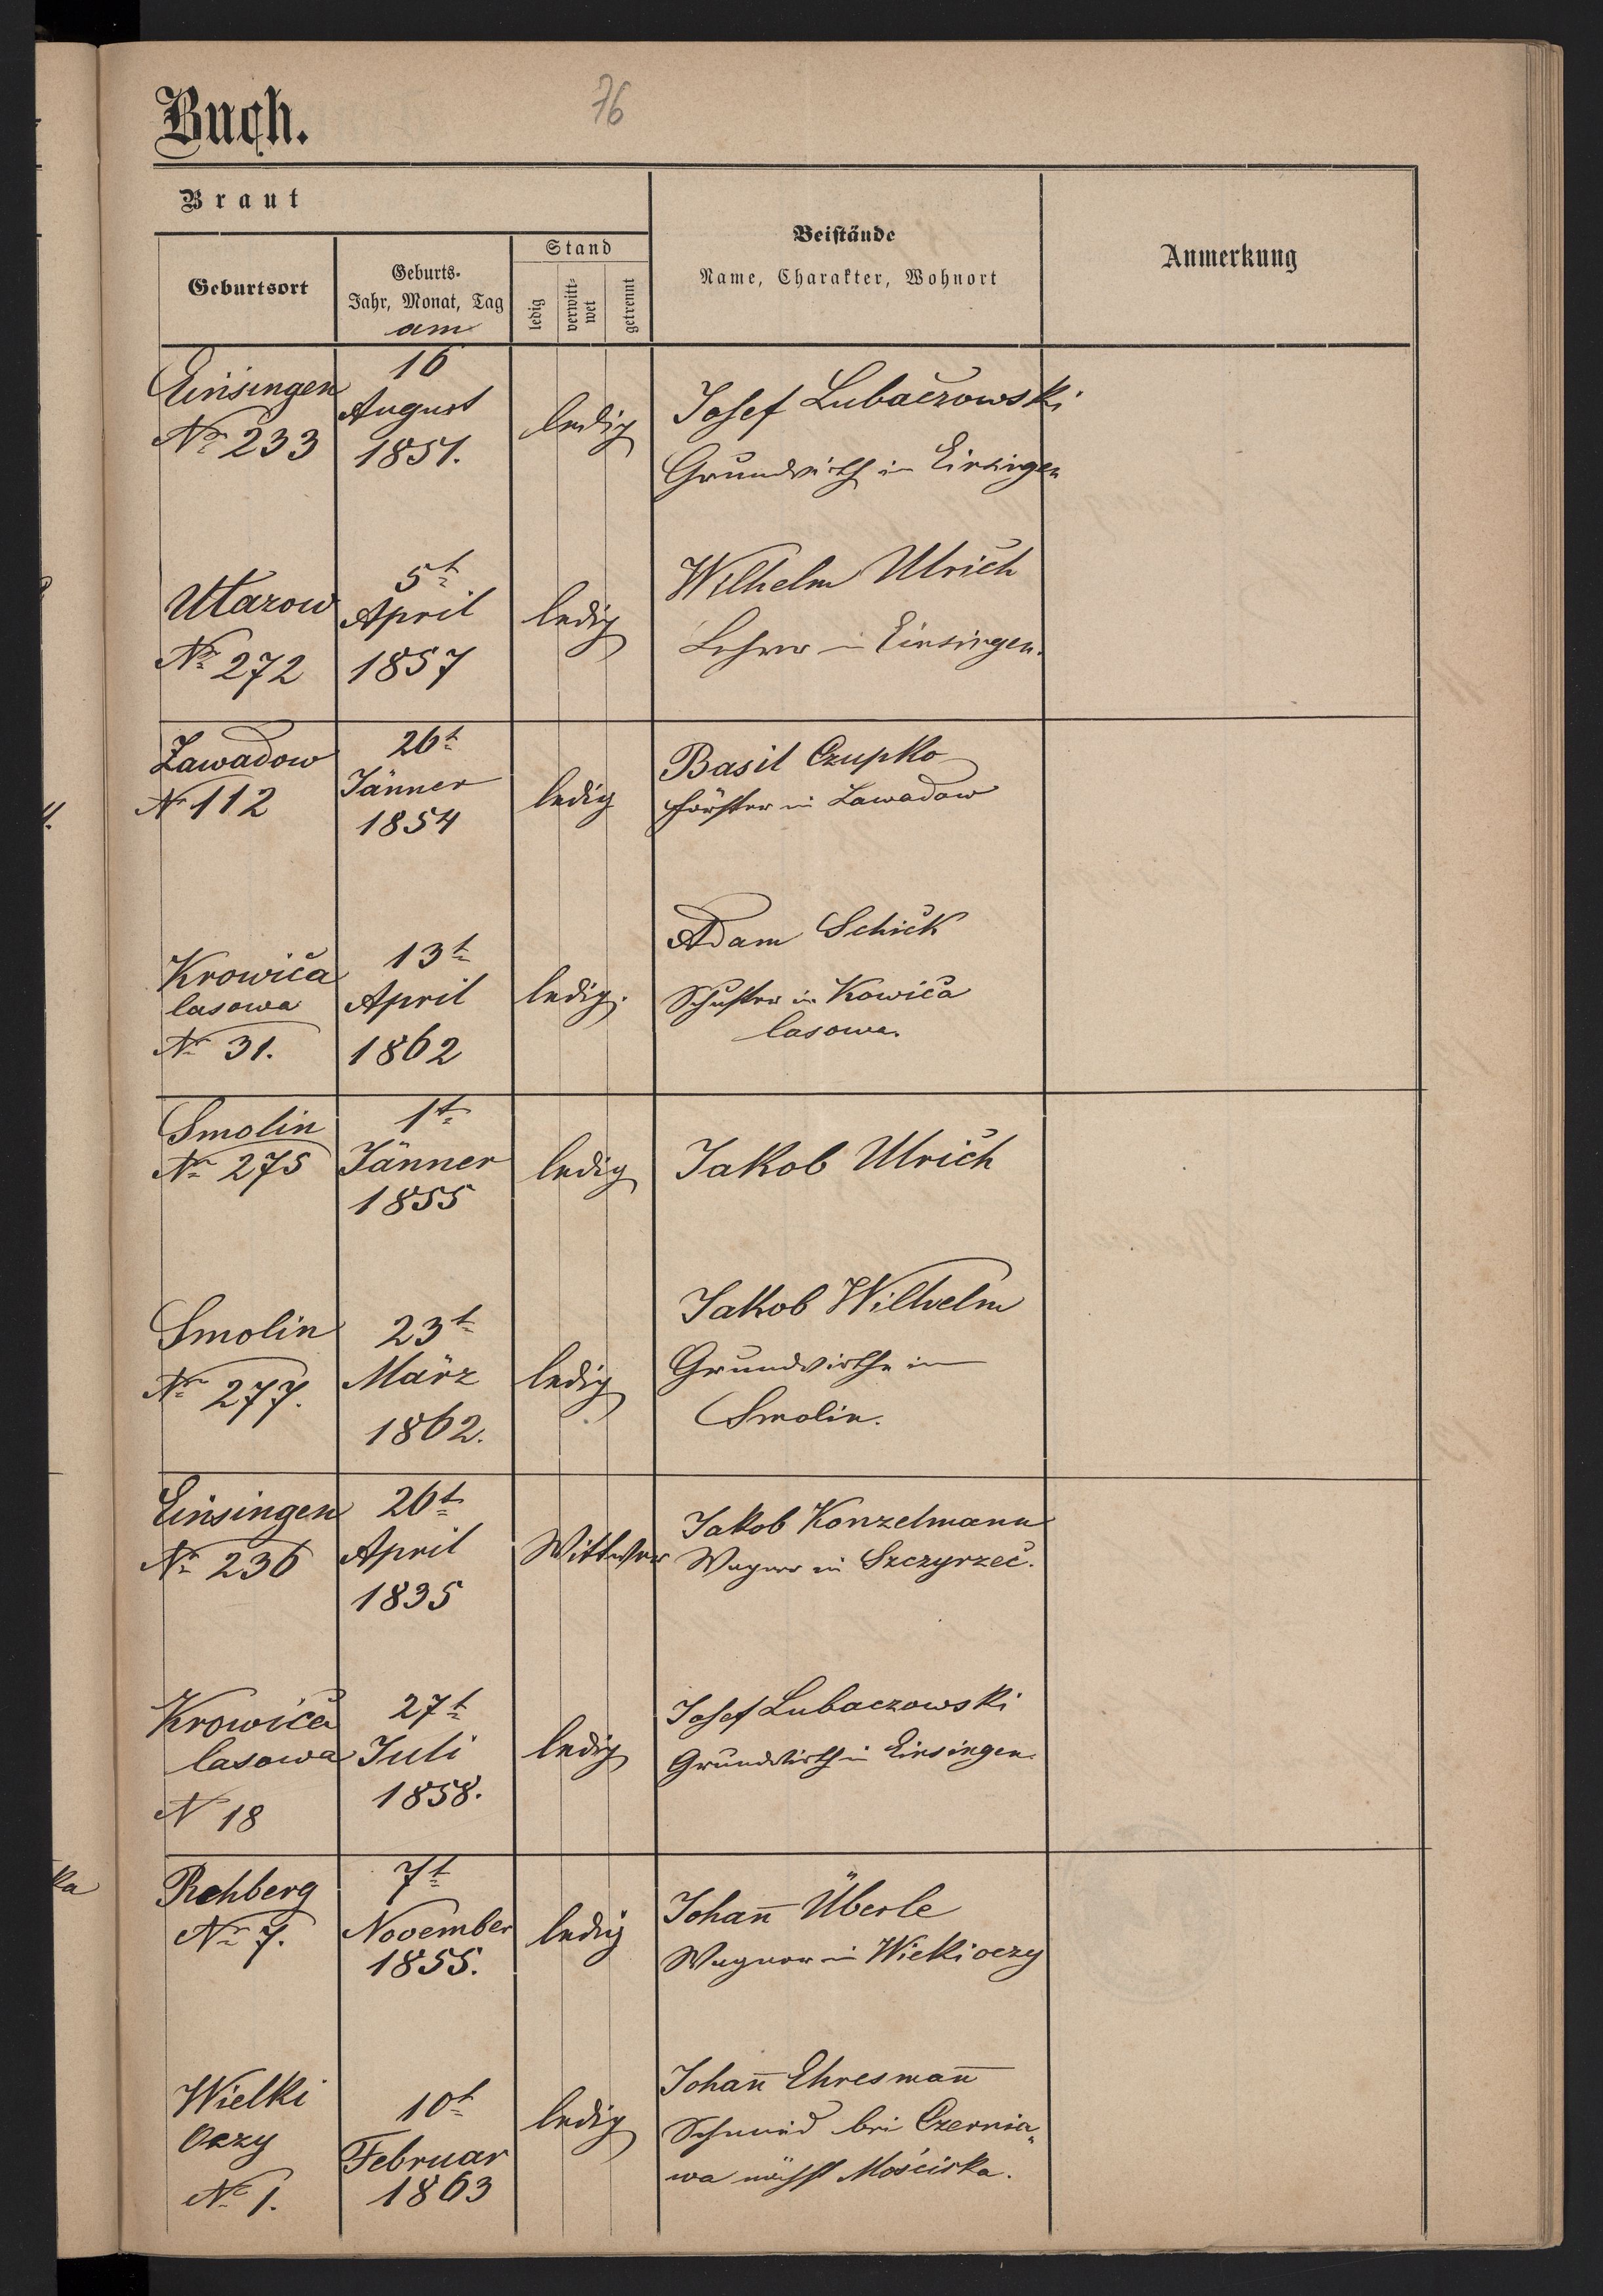 Buch.
76
Braut
Geburtsort
Geburts-
Jahr, Monat, Tag
am
Stand
ledig
verwitt-
wet
getrennt
Beistände
Name, Charakter, Wohnort
Anmerkung
Einsingen
Nr 233
16
August
1851.
ledig
Josef Lubaczowski
Grundwirth in Einsingen
Utarow
Nr 272
5t
April
1857
ledig
Wilhelm Ulrich
Lehrer in Einsingen.
Zawadow
Nr 112
26t
Jänner
1854
ledig
Basil Czupko
Förster in Zawadow
Krowica
lasowa
Nr 31.
13t
April
1862
ledig.
Adam Schick
Schuster in Kowica
lasowa.
Smolin
Nr 275
1t
Jänner
1855
ledig
Jakob Ulrich
Smolin
Nr 277.
23t
März
1862.
ledig
Jakob Wilhelm
Grundwirth in
Smolin.
Einsingen
Nr 236
26t
April
1835
Wittwer
Jakob Konzelmann
Wagner in Szczyrzec.
Krowica
lasowa
N 18
27t
Juli
1858.
ledig
Josef Lubaczowski
Grundwirth in Einsingen.
Rehberg
Nr 7.
7t
November
1855.
ledig
Johan̄ Überle
Wagner in Wielkioczy
Wielki
Oczy
Nr 1.
10t
Februar
1863
ledig
Johan̄ Ehresman̄
Schmied bei Czernia„
wa nächst Mościska.